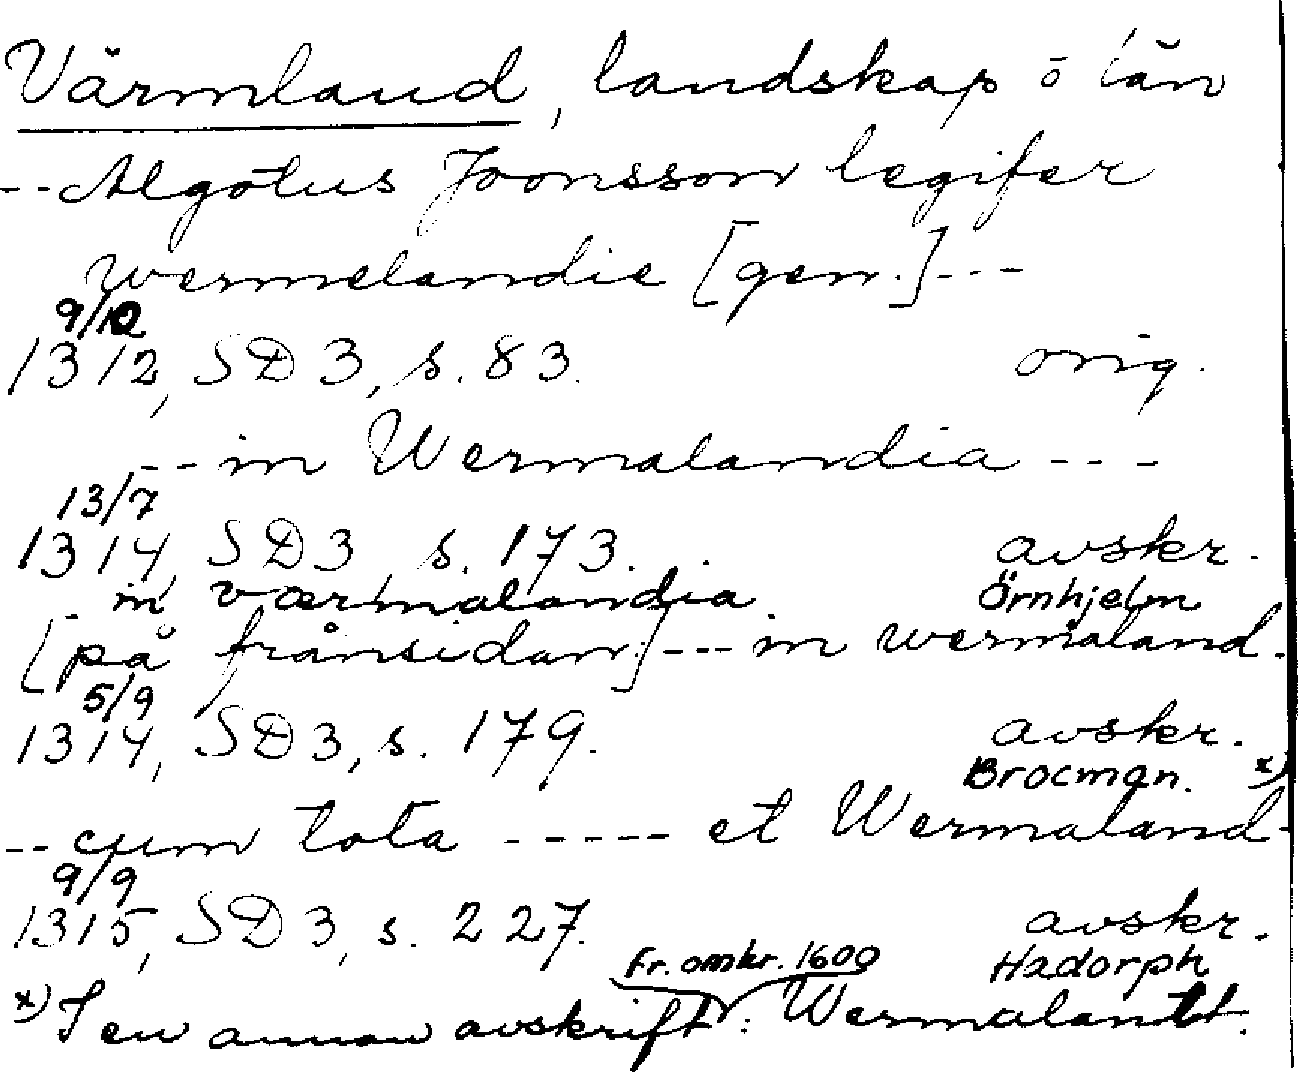 Värmland, landskap o län
-- Algotus Joonsson legifer
wermelandie [gen.] ---
9/12
1312, SD 3, s. 83. orig.
-- in Wermalandia ---
13/7
1314, SD 3, s. 173. avskr.
in værmalandia Örnhjelm
[på frånsidan] --- in wermaland.
5/9
1314, SD 3, s. 179. avskr.
Brocman. x)
-- cum tota ----- et Wermaland-
9/9
1315, SD 3, s. 227. avskr.
fr. omkr. 1600 Hadorph
x) I en annan avskrift: Wermalandt.